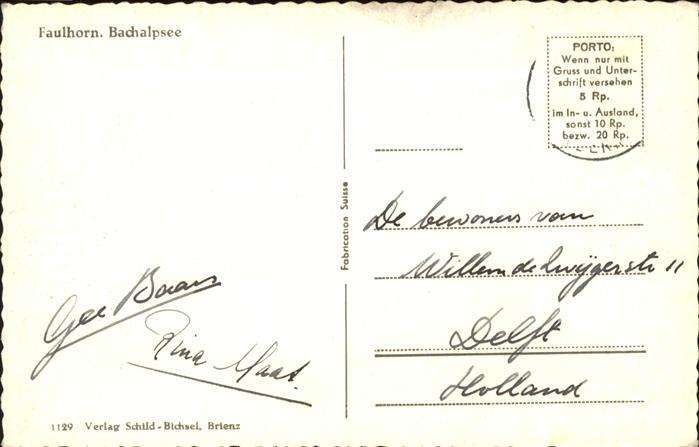 Faulhorn. Bachalpsee
PORTO:
Wenn nur mit
Gruss und Unter-
schrift versehen
5 Rp.
im In- u. Ausland,
sonst 10 Rp.
bezw. 20 Rp.
Fabrication Suisse
De bewoners van
Willem de Zwijgerstr 11
Delft
Holland
Gee Baars
Rina Maat.
1129 Verlag Schild-Bichsel, Brienz